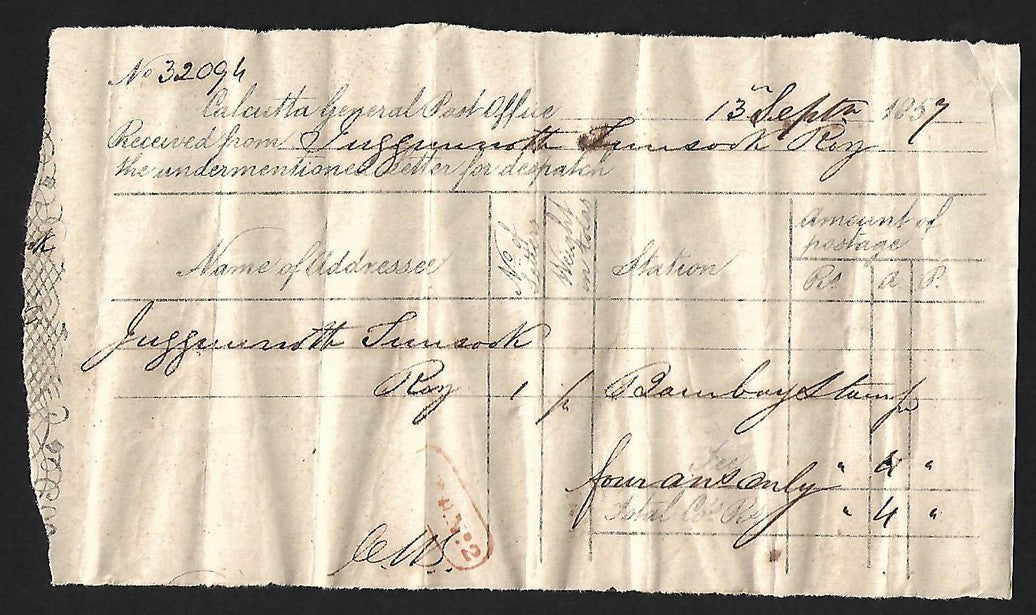 No 32094
Calcutta General Post Office 13 Septr 1857
Received from Juggurnoth Roy
the undermentioned Letter for despatch
Name of Addressee No. of Letter Weight in tolas Station Amount of postage
Rs. a P.
Juggurnoth
Roy 1 Bombay Stamp
Fee
four ans only " 4 "
Total Co.s Rs. " 4 "